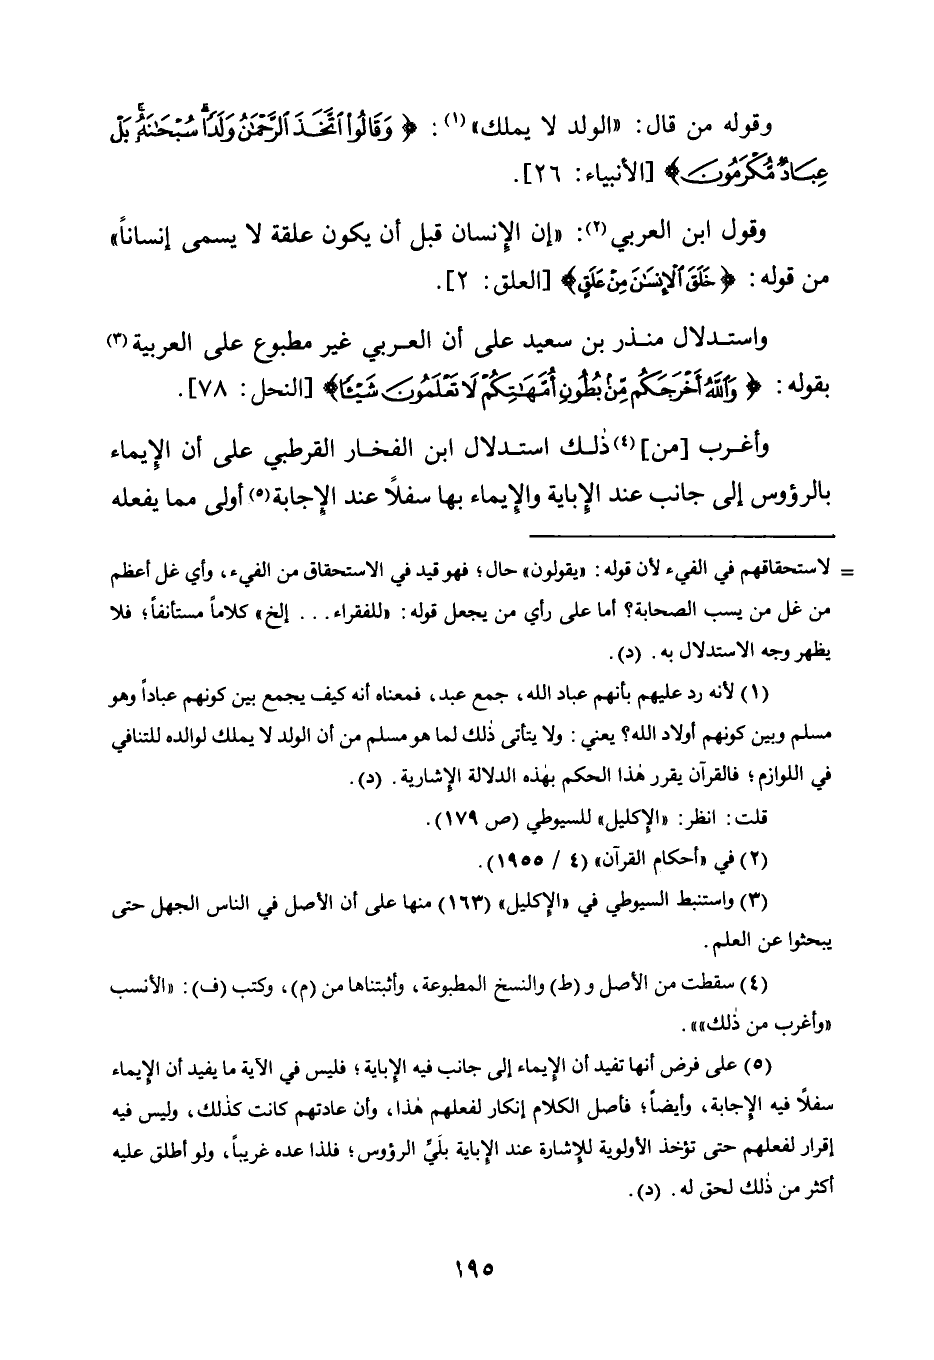 وقوله من قال: «الولد لا يملك»(١): ﴿ وَقَالُوا۟ ٱتَّخَذَ ٱلرَّحْمَٰنُ وَلَدًا ۗ سُبْحَٰنَهُۥ ۚ بَلْ
عِبَادٌ مُّكْرَمُونَ﴾ [الأنبياء: ٢٦].
وقول ابن العربي(٢): «إن الإنسان قبل أن يكون علقة لا يسمى إنساناً»
من قوله: ﴿ خَلَقَ ٱلْإِنسَٰنَ مِنْ عَلَقٍ﴾ [العلق: ٢].
واستدلال منذر بن سعيد على أن العربي غير مطبوع على العربية(٣)
بقوله: ﴿ وَٱللَّهُ أَخْرَجَكُم مِّنۢ بُطُونِ أُمَّهَٰتِكُمْ لَا تَعْلَمُونَ شَيْـًٔا﴾ [النحل: ٧٨].
وأغرب [من](٤) ذٰلك استدلال ابن الفخار القرطبي على أن الإيماء
بالرؤوس إلى جانب عند الإباية والإيماء بها سفلاً عند الإجابة(٥) أولى مما يفعله
= لاستحقاقهم في الفيء لأن قوله: «يقولون» حال؛ فهو قيد في الاستحقاق من الفيء، وأي غل أعظم
من غل من يسب الصحابة؟ أما على رأي من يجعل قوله: «للفقراء... إلخ» كلاماً مستأنفاً؛ فلا
يظهر وجه الاستدلال به. (د).
(١) لأنه رد عليهم بأنهم عباد الله، جمع عبد، فمعناه أنه كيف يجمع بين كونهم عباداً وهو
مسلم وبين كونهم أولاد الله؟ يعني: ولا يتأتى ذٰلك لما هو مسلم من أن الولد لا يملك لوالده للتنافي
في اللوازم؛ فالقرآن يقرر هٰذا الحكم بهٰذه الدلالة الإشارية. (د).
قلت: انظر: «الإكليل» للسيوطي (ص ١٧٩).
(٢) في «أحكام القرآن» (٤ / ١٩٥٥).
(٣) واستنبط السيوطي في «الإكليل» (١٦٣) منها على أن الأصل في الناس الجهل حتى
يبحثوا عن العلم.
(٤) سقطت من الأصل و (ط) والنسخ المطبوعة، وأثبتناها من (م)، وكتب (ف): «الأنسب
«وأغرب من ذٰلك»».
(٥) على فرض أنها تفيد أن الإيماء إلى جانب فيه الإباية؛ فليس في الآية ما يفيد أن الإيماء
سفلاً فيه الإجابة، وأيضاً؛ فأصل الكلام إنكار لفعلهم هٰذا، وأن عادتهم كانت كذٰلك، وليس فيه
إقرار لفعلهم حتى تؤخذ الأولوية للإشارة عند الإباية بلَيِّ الرؤوس؛ فلذا عده غريباً، ولو أطلق عليه
أكثر من ذٰلك لحق له. (د).
١٩٥